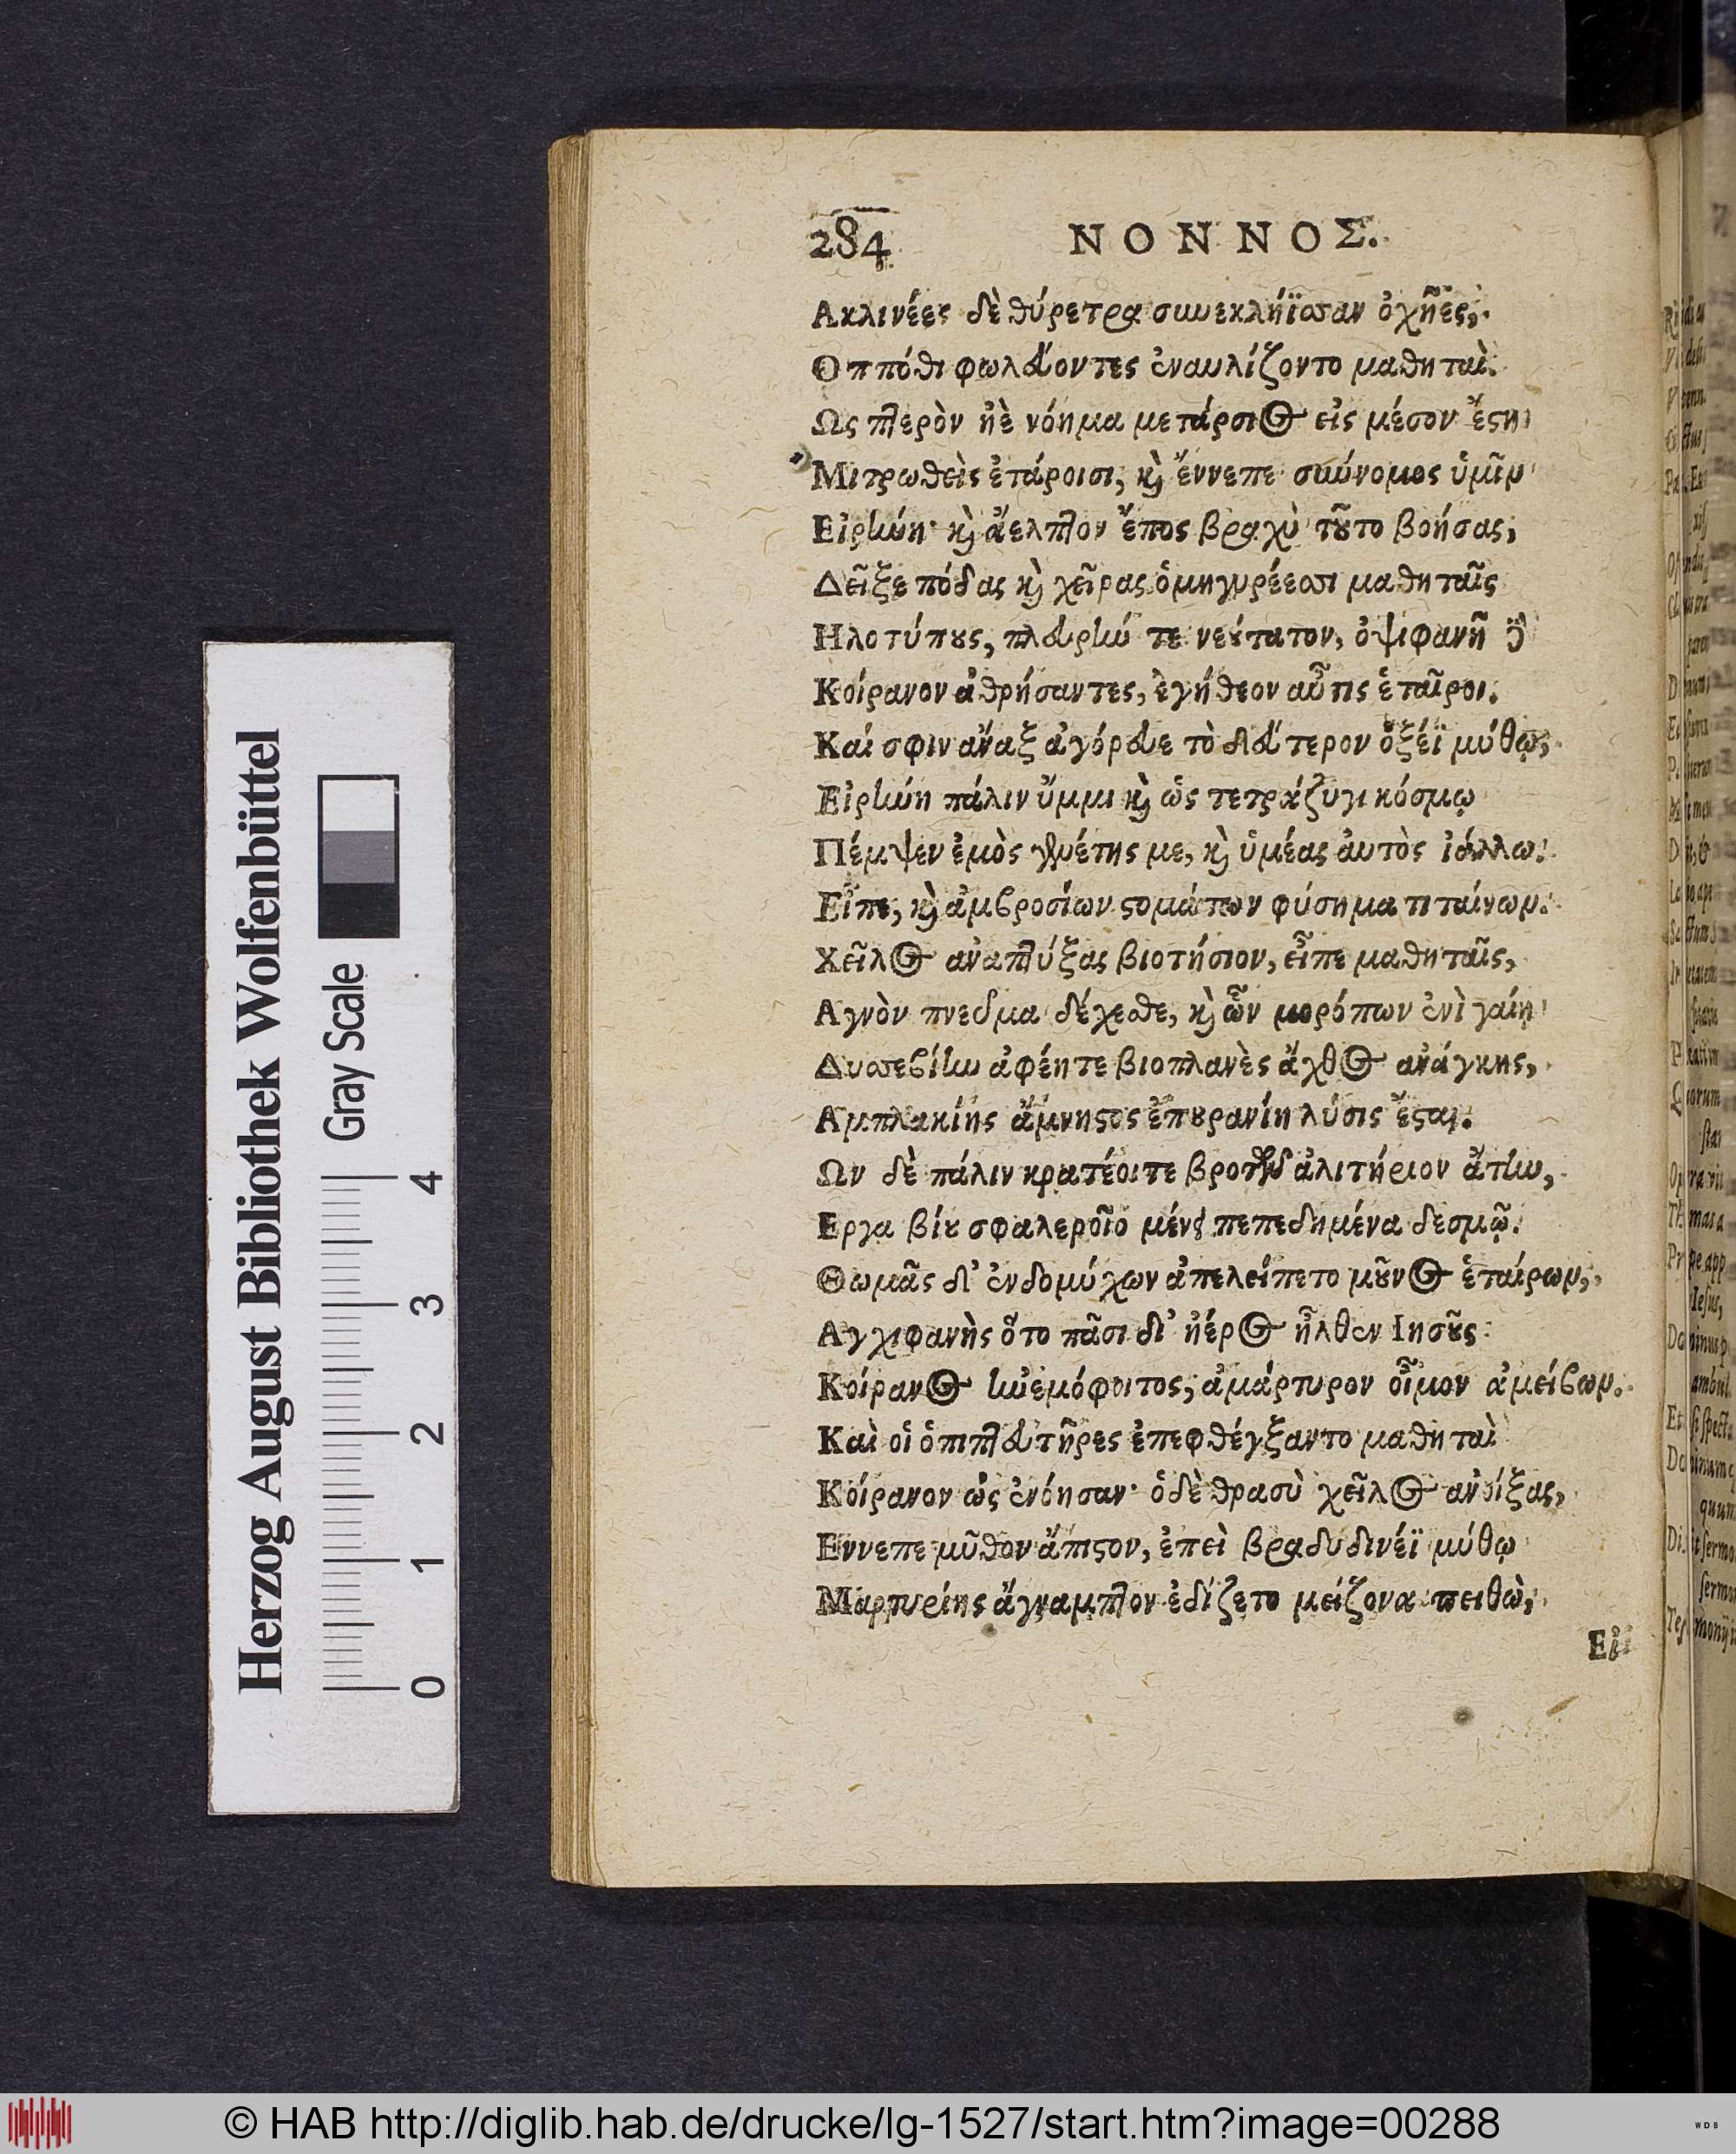 284 ΝΟΝΝΟΣ.
Ακλινέες δὲ θύρετρα συνεκλήϊσσαν ὀχῆες,
Οππόθι φωλεύοντες ἐναυλίζοντο μαθηταί.
Ως πτερὸν ἠὲ νόημα μετάρσιος εἰς μέσον ἔστη
Μιτρωθεὶς ἑτάροισι, καὶ ἔννεπε σωύνομος ὑμῖν
Εἰρήνη· καὶ ἄελπτον ἔπος βραχὺ τοῦτο βοήσας,
Δεῖξε πόδας καὶ χεῖρας ὁμηγυρέεσσι μαθηταῖς
Ηλοτύπους, πλευρήν τε νεούτατον, ὀψιφανῆ δὲ
Κοίρανον ἀθρήσαντες, ἐγήθεον αὖτις ἑταῖροι.
Καί σφιν ἄναξ ἀγόρευε τὸ δεύτερον ὀξέϊ μύθῳ,
Εἰρήνη πάλιν ὔμμι καὶ ὡς τετράζυγι κόσμῳ
Πέμψεν ἐμὸς γενέτης με, καὶ ὑμέας ἀυτὸς ἰάλλω.
Εἶπε, καὶ ἀμβροσίων στομάτων φύσημα τιταίνων.
Χεῖλος ἀναπτύξας βιοτήσιον, εἶπε μαθηταῖς,
Αγνὸν πνεῦμα δέχεσθε, καὶ ὧν μερόπων ἐνὶ γαίῃ
Δυσσεβίην ἀφέητε βιοπλανὲς ἄχθος ἀνάγκης,
Αμπλακίης ἄμνηστος ἐπουρανίη λύσις ἔσται.
Ων δὲ πάλιν κρατέοιτε βροτῶν ἀλιτήριον ἄτην,
Εργα βίου σφαλεροῖο μένει πεπεδημένα δεσμῷ.
Θωμᾶς δ’ ἐνδομύχων ἀπελείπετο μοῦνος ἑταίρων,
Αγχιφανὴς ὅτο πᾶσι δι’ ἠέρος ἦλθεν Ιησοῦς
Κοίρανος ἠνεμόφοιτος, ἀμάρτυρον οἶμον ἀμείβων.
Καὶ οἱ ὀπιπτευτῆρες ἐπεφθέγξαντο μαθηταὶ
Κοίρανον ὡς ἐνόησαν· ὁ δὲ θρασὺ χεῖλος ἀνοίξας,
Εννεπε μῦθον ἄπιστον, ἐπεὶ βραδυδινέϊ μύθῳ
Μαρτυρίης ἄγναμπτον ἐδίζετο μείζονα πειθὼ,
Εἰ
Herzog August Bibliothek Wolfenbüttel
Gray Scale
0 1 2 3 4
© HAB http://diglib.hab.de/drucke/lg-1527/start.htm?image=00288
WDB